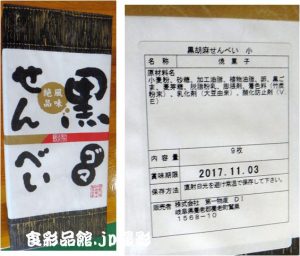 黒ゴマ
せんべい
風味
絶品
食彩品館.jp撮影
黒胡麻せんべい 小
名称 焼菓子
原材料名
小麦粉、砂糖、加工油脂、植物油脂、卵、黒ごま、麦芽糖、脱脂粉乳、膨張剤、着色料(竹炭粉末)、乳化剤(大豆由来)、酸化防止剤(V.E)
内容量 9枚
賞味期限 2017.11.03
保存方法 直射日光を避け常温で保存して下さい。
販売者 株式会社 第一物産 DI
岐阜県養老郡養老町鷲巣
1568-10